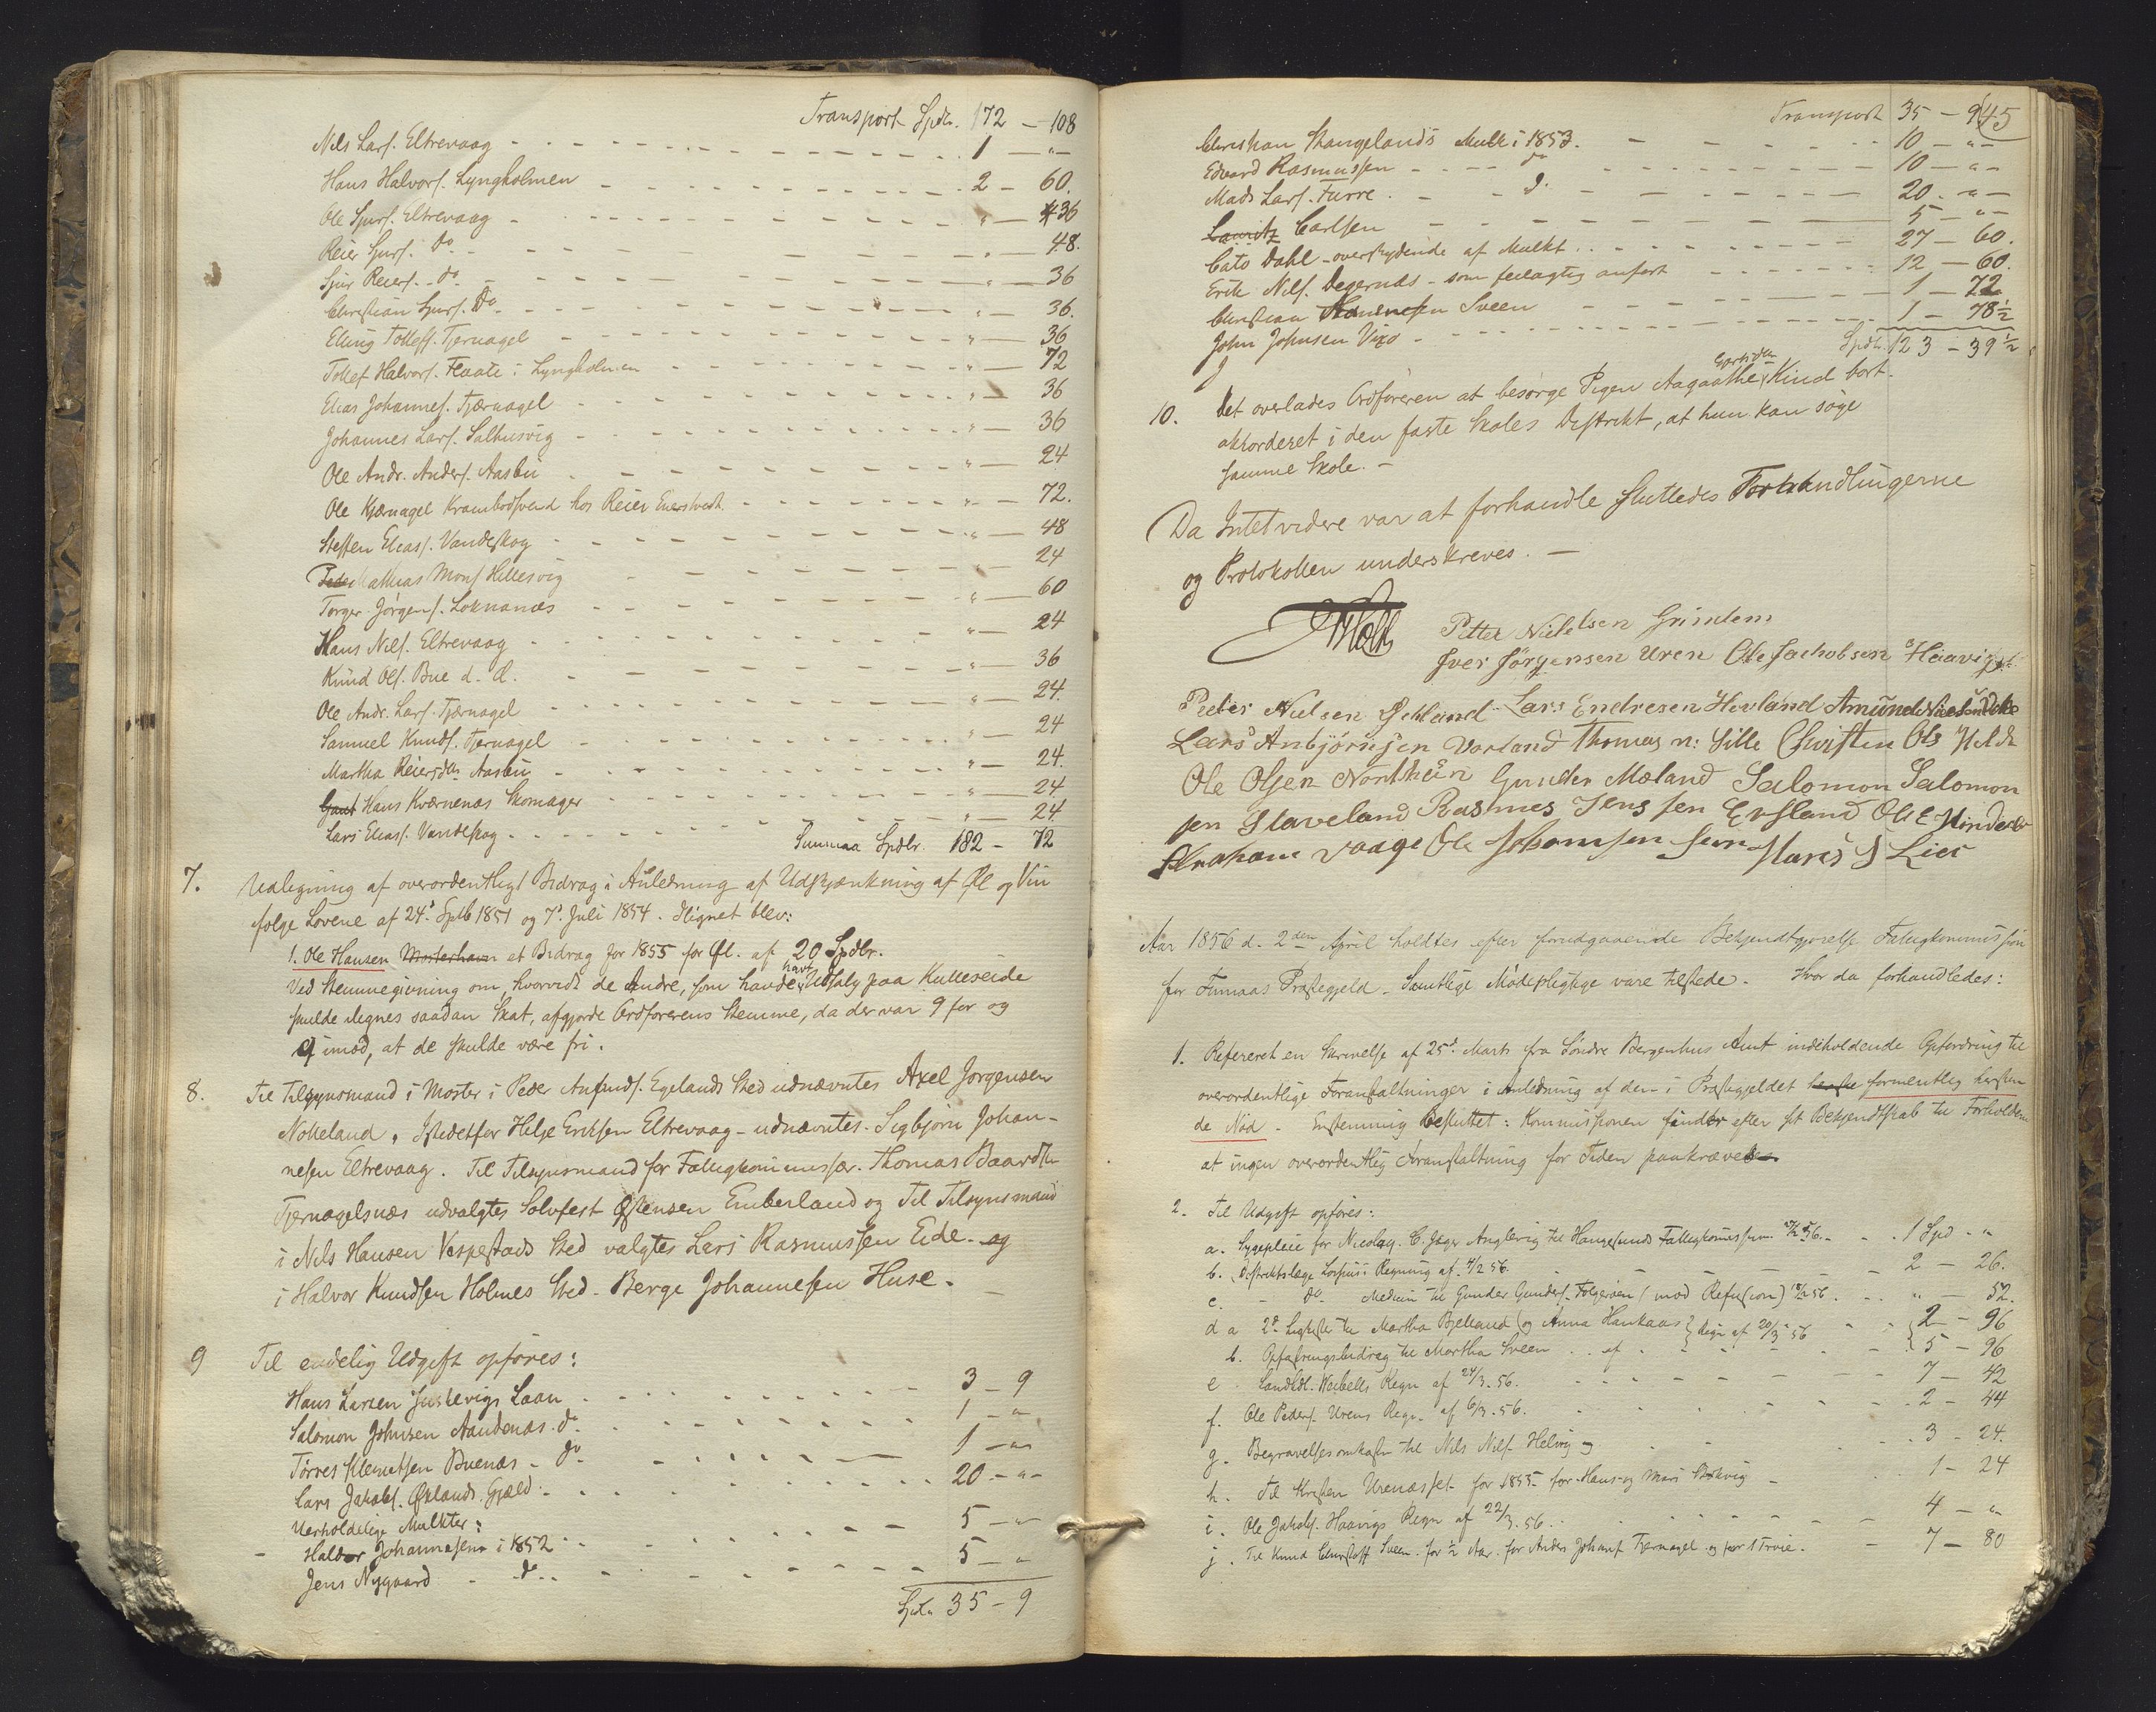 Transport Spdlr. 172 – 108
Nils Lars. Eltrevaag - - - 1 – " –
Hans Halvors. Lyngholmen - - - 2 – 60.
Ole Sjurs. Eltrevaag - - - " – 36
Reier Sjurs. do - - - " – 48.
Sjur Reiers. do - - - " – 36
Christian Sjurs. Do - - - " – 36.
Elling Tollefs. Tjernagel - - - " – 36
Tollef Halvors. Flaate i Lyngholmen - - - " – 72
Elias Johannes. Tjærnagel - - - " – 36
Johannes Lars. Salhusvig - - - " – 36
Ole Andr. Anders. Aasbu - - - " – 24
Ole Kjærnagel Krambodsvend hos Reier - - - " – 72.
Steffen Elias. Vandeskog - - - " – 48
Mathias Mons. Hillesvig - - - " – 24
Torger Jörgens. Loknanæs - - - " – 60
Hans Nils. Eltrevaag - - - " – 24
Knud Ols. Bue d. d. - - - " – 36
Ole Andr. Lars. Tjærnagel - - - " – 24.
Samuel Knuds. Tjernagel - - - " – 24
Martha Reiersdtr Aasbu - - - " – 24.
Hans Kværnenæs Skomager - - - " – 24
Lars Elias. Vandeskog - - - " – 24.
Summa Spdlr. 182 – 72
7. Udligning af overordentligt Bidrag i Anledning af Udskjænkning af Øl og Vin
følge Lovene af 24de Septb 1851 og 7de Juli 1854. Ilignet blev:
1. Ole Hansen Mosterhavn et Bidrag for 1855 for Øl. af 20 Spdlr.
Ved Stemmegivning om, hvorvidt de Andre, som havde havt Udsalg paa Kulleseide
skulde ilegnes saadan Skat, afgjorde Ordførerens Stemme, da der var 9 for og
9 imod, at de skulde være fri.
8. Til Tilsynsmand i Moster i Peder Egelands Sted udnævntes Axel Jorgensen
Nokeland. Istedetfor Helje Eriksen Eltrevaag – udnævntes. Sigbjørn Johan-
nesen Eltrevaag. Til Tilsynsmand for Fattigkommissær. Thomas Baardsen
Tjernagelsnæs udvalgtes Solvfest Østensen Emberland og Til Tilsynsmand
i Nils Hansen Vespestads Sted valgtes Lars Rasmussen Eide. og
i Halvor Knudsen Holmes Sted. Berge Johannesen Huse.
9 Til endelig Udgift opføres:
Hans Larsen Laan - - - 3 – 9
Salomon Johnsen Aandenæs. do - - - 1 – "
Tørres Klemetsen Buenæs - do - - - 1 – "
Lars Jakobs. Øklands. Gjæld - - - 20 – " –
Uerholdelige Mulkter:
Haldor Johannesen i 1852 - - - 5 – "
Jens Nygaard - do - - - 5 – "
Spdlr 35 – 9
Transport 35 – 9 45
Christian Stangelands Mulkt i 1853. - - - 10 – " –
Edvard Rasmussen - - do - - - 10 – " –
Mads Lars. Furre. - - do - - - 20. " –
Lauritz Carlsen - - - 5 – " –
Cato Dahl – overskydende af Mulkt - - - 27 – 60.
Erik Nils. Degernæs – som feilagtig anført - - - 12 – 60.
Christian Sveen - - - 1 – 72
John Johnsen Vixo - - - 1 – 78½
Spdlr. 123 – 39½
10. Det overlades Ordføreren at besørge Pigen Aagaathe Kind bort-
akkorderet i den faste Skoles Distrikt, at hun kan søge
samme Skole. –
Da Intet videre var at forhandle sluttedes Forhandlingerne
og Protokollen underskreves. –
Petter Nielsen Grindem
Iver Jörgensen Uren Ole Jachobsen Haavig
Peder Nielsen Lars Endresen Hovland Amund
Lars Anbjörnsen Vorland Thomas n: Sille Christen Ols
Ole Olsen Gunder Mæland Salomon Salomon
sen Staveland Rasmus Jenssen Ersland Ole E
Abraham Vaage Ole Hans J Lier
Aar 1856 d. 2den April holdtes efter forudgaaende Bekjendtgjørelse Fattigkommission
for Finnaas Præstegjeld – Samtlige Mødepligtige vare tilstede. Hvor da forhandledes:
1. Refereret en Skrivelse af 25de Marts fra Søndre Bergenhus Amt indeholdende Opfordring til
overordentlige Foranstaltninger i Anledning af den i Præstegjeldet formentlig hersken
de Nød. Enstemmig besluttet: Kommissionen finder efter sit Bekjendtskab til Forholdene
at ingen overordentlig Foranstaltning for Tiden paakræves
2. Til Udgift opføres:
a. Sygepleie for Nicolay. C. til Haugesunds Fattigkommission 56. - - 1 Spd. "
b. Distriktslæge Regning af 4/2 56. - - - 2 – 26.
c. – do. Medicin til Gunder Gunders. Folgerøen (mod Refusion) 56 - - " – 52.
d a 2de Ligkister til Martha Bjelland og Anna Haukaas } Regn af 20/3 56 - - 2 – 96
b. Opfostringsbidrag til Martha Sveen - - 5 – 96
e Landhdl. Regn af 24/3. 56. - - - 7 – 42
f. Ole Peders. Urens Regn. af 6/3. 56. - - - 2 – 44
g. Begravelsesomkostn til Nils Nils. Helvig - - - 3 – 24.
h. Til for 1855 for Hans og - - - 1 – 24
i. Ole Jakobs. Haavigs Regn af 22/3. 56. - - - 4 – "
j. Til Knud Sveen. for ½ Aar. for Anders Johans. Tjernagel og for 1 - - 7 – 80